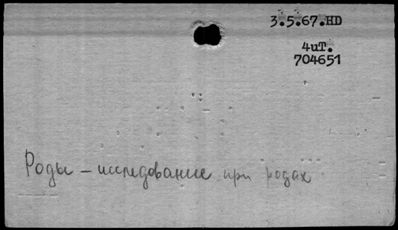 3.5.67.HD
4uT.
704651
Роды – исследование при родах